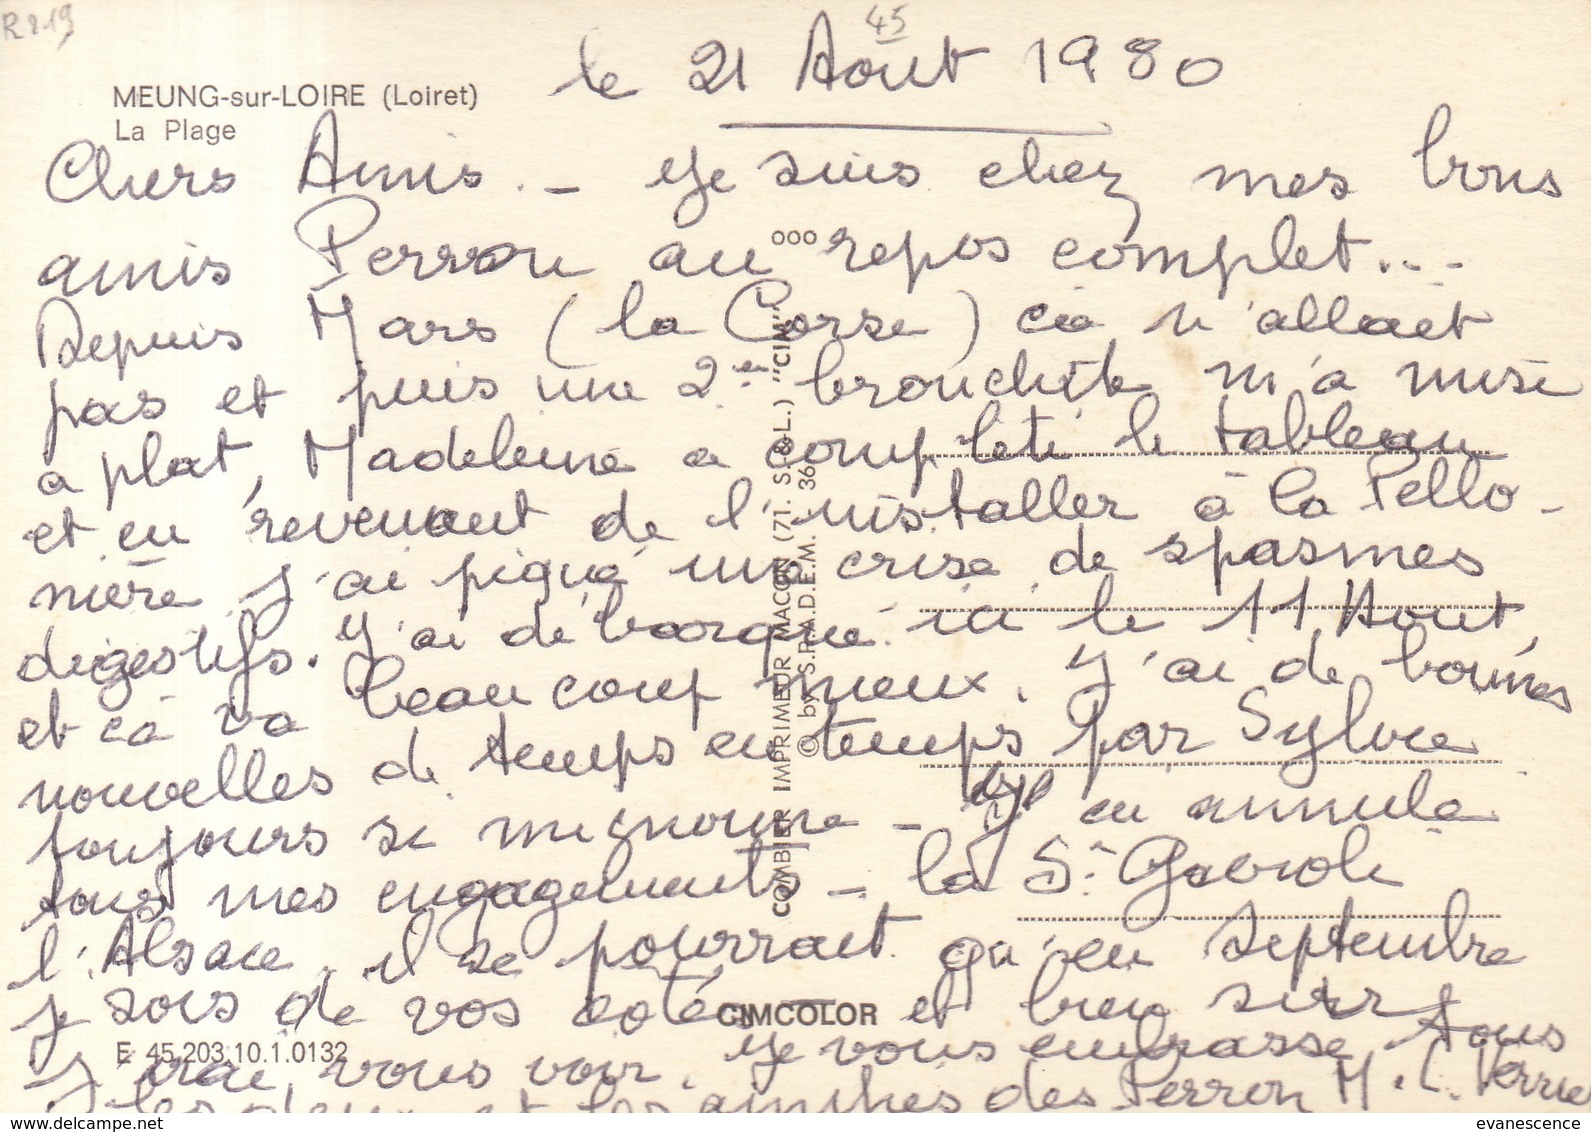 R219
45
le 21 Aout 1980
MEUNG-sur-LOIRE (Loiret)
La Plage
Chers Amis. - Je suis chez mes bons
amis Perron au repos complet...
Depuis Mars (la Corse) ça n'allait
pas et puis une 2e bronchite m'a mise
a plat, Madeleine a complété le tableau
et en revenant de l'installer à la Pello-
nière j'ai piqué une crise de spasmes
digestifs. J'ai débarqué ici le 11 Aout,
et ça va beaucoup mieux. J'ai de bonnes
nouvelles de temps en temps par Sylvie
toujours si mignonne - J'ai annulé
tous mes engagements - la St Gabriole
l'Alsace, il se pourrait qu'en Septembre
je sois de vos cotés et bien sur
j'irai vous voir. Je vous embrasse tous
les deux et les amitiés des Perron M. L. Verrier
ooo
COMBIER IMPRIMEUR MACON (71. S.-&-L.) "CIM"
© by S.P.A.D.E.M. 36
CIMCOLOR
E 45.203.10.1.0132
www.delcampe.net
evanescence